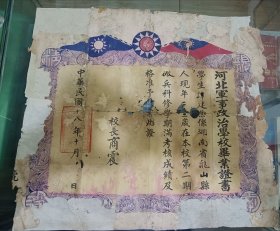 河北軍事政治學校畢業證書
學生譚建勳係湖南省龍山縣
人現年 歲在本校第二期
砲兵科修學期滿考核成績及
格准予畢業此證
校長商震
中華民國 八年十月 日